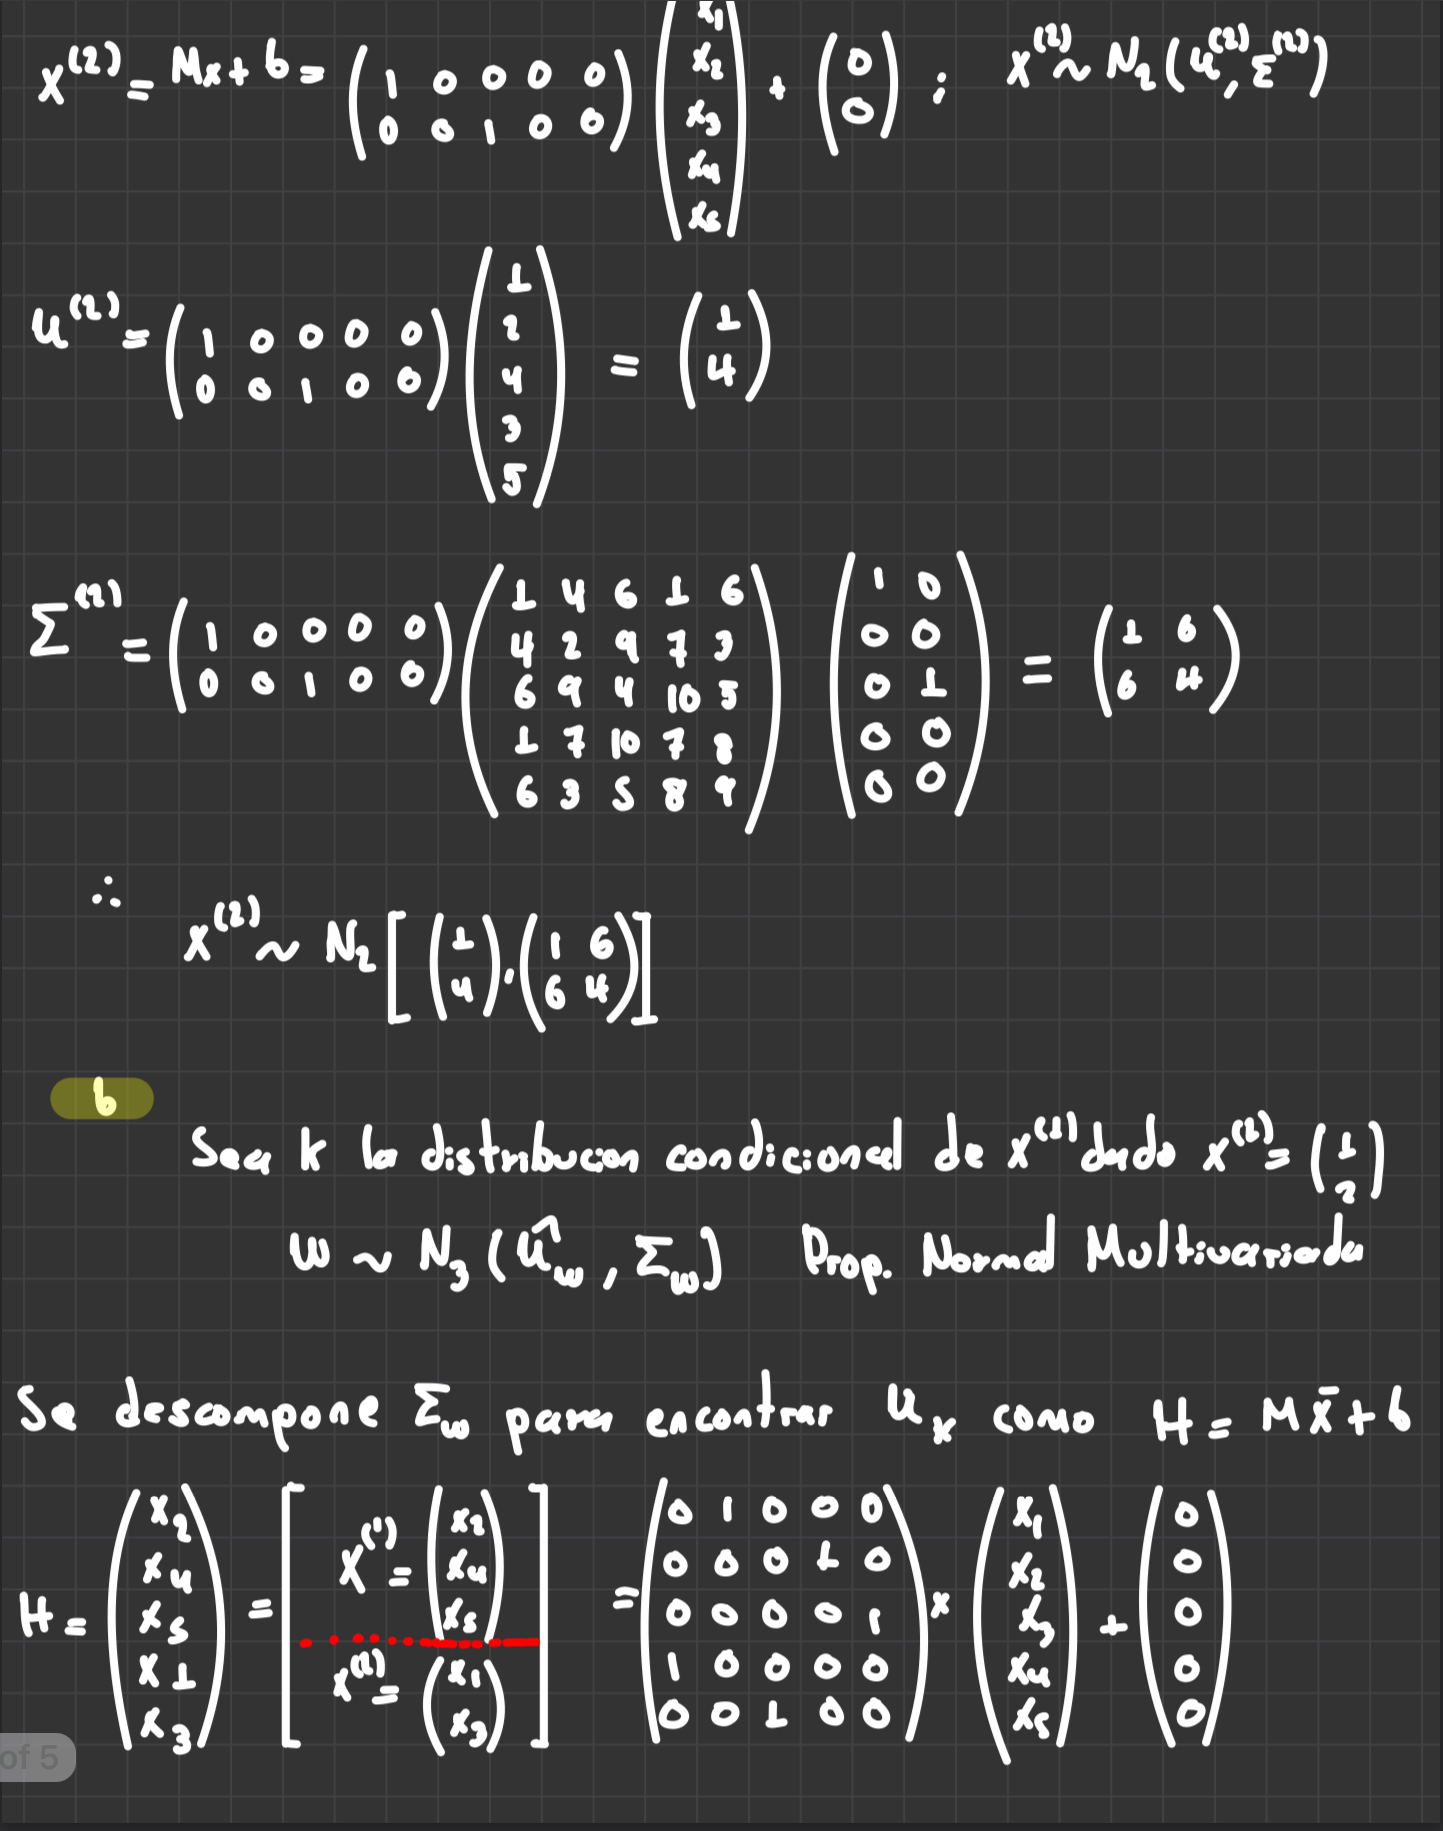 X^(2) = Mx + b = (1 0 0 0 0; 0 0 1 0 0) (x1; x2; x3; x4; x5) + (0; 0) ; X^(2) ~ N2 (u^(2), Σ^(2))
u^(2) = (1 0 0 0 0; 0 0 1 0 0) (1; 2; 4; 3; 5) = (1; 4)
Σ^(2) = (1 0 0 0 0; 0 0 1 0 0) (1 4 6 1 6; 4 2 9 7 3; 6 9 4 10 5; 1 7 10 7 8; 6 3 5 8 9) (1 0; 0 0; 0 1; 0 0; 0 0) = (1 6; 6 4)
∴
X^(2) ~ N2 [(1; 4), (1 6; 6 4)]
b
Sea K la distribucion condicional de X^(1) dado X^(2) = (1; 2)
W ~ N3 (û_w, Σ_w) Prop. Normal Multivariada
Se descompone Σ_w para encontrar u_x como H = M x̄ + b
H = (x2; x4; x5; x1; x3) = [X^(1) = (x2; x4; x5); X^(2) = (x1; x3)] = (0 1 0 0 0; 0 0 0 1 0; 0 0 0 0 1; 1 0 0 0 0; 0 0 1 0 0) * (x1; x2; x3; x4; x5) + (0; 0; 0; 0; 0)
of 5